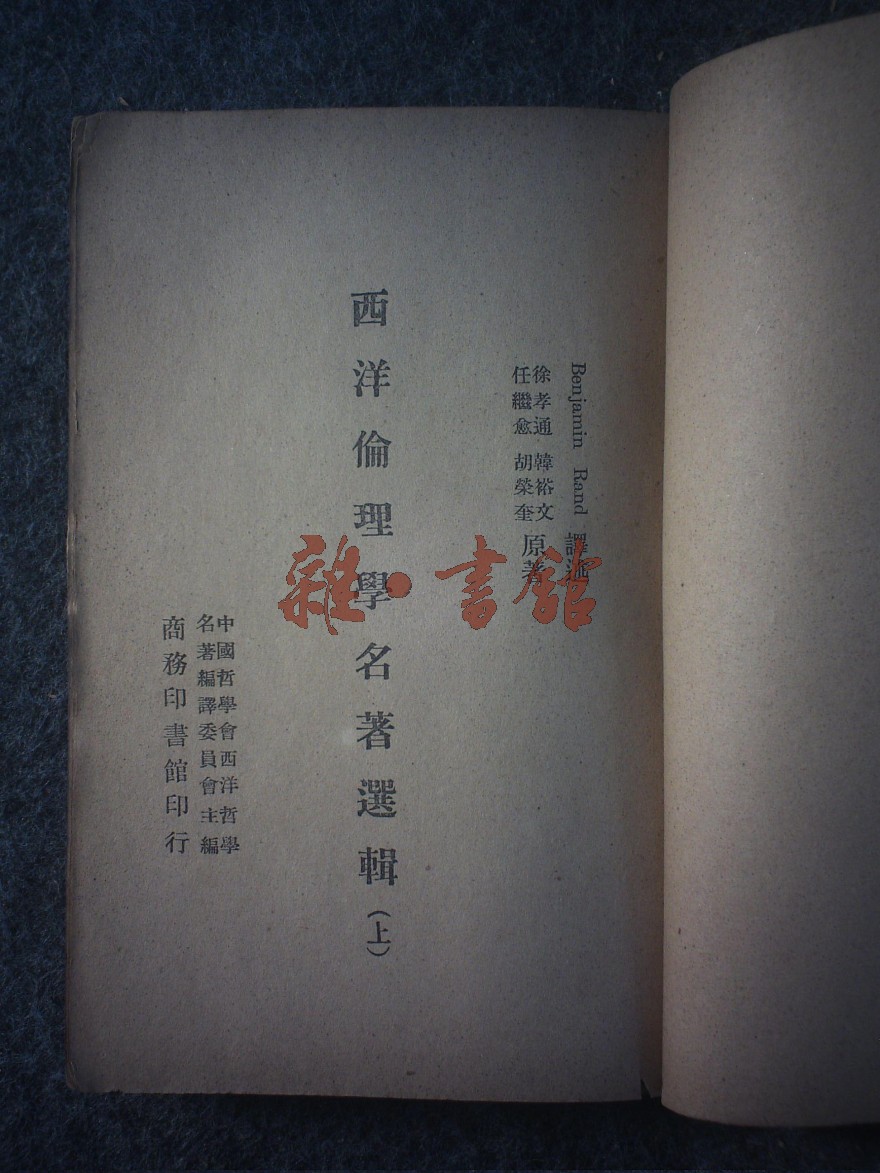 Benjamin Rand 譯述
徐孝通 韓裕文
任繼愈 胡榮奎 原著
西洋倫理學名著選輯(上)
中國哲學會西洋哲學
名著編譯委員會主編
商務印書館印行
雜·書館